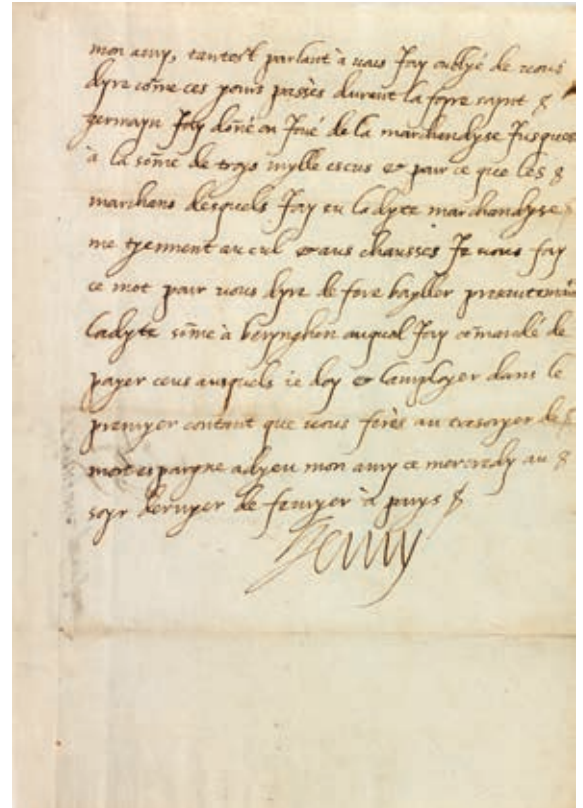 mon amy, tantost parlant à vous Jay oublyé de vous
dyre cõme ces jours passès durent la foyre saynt
germayn Jay doñé ou Joué de la marchandyse Jusques
à la sõme de troys mylle escus & par ce que les
marchans desquels Jay eu ladyte marchandyse
me tyennent au cul & aus chausses Je vous fay
ce mot pour vous dyre de fere bayller presantemãt
ladyte sõme à berynghen auquel Jay cõmandé de
payer ceus ausquels ie doy & lamployer dans le
premyer contant que vous ferès au tresoryer de
mon espargne adyeu mon amy ce mercredy au
soyr dernyer de fevryer à parys
Henry